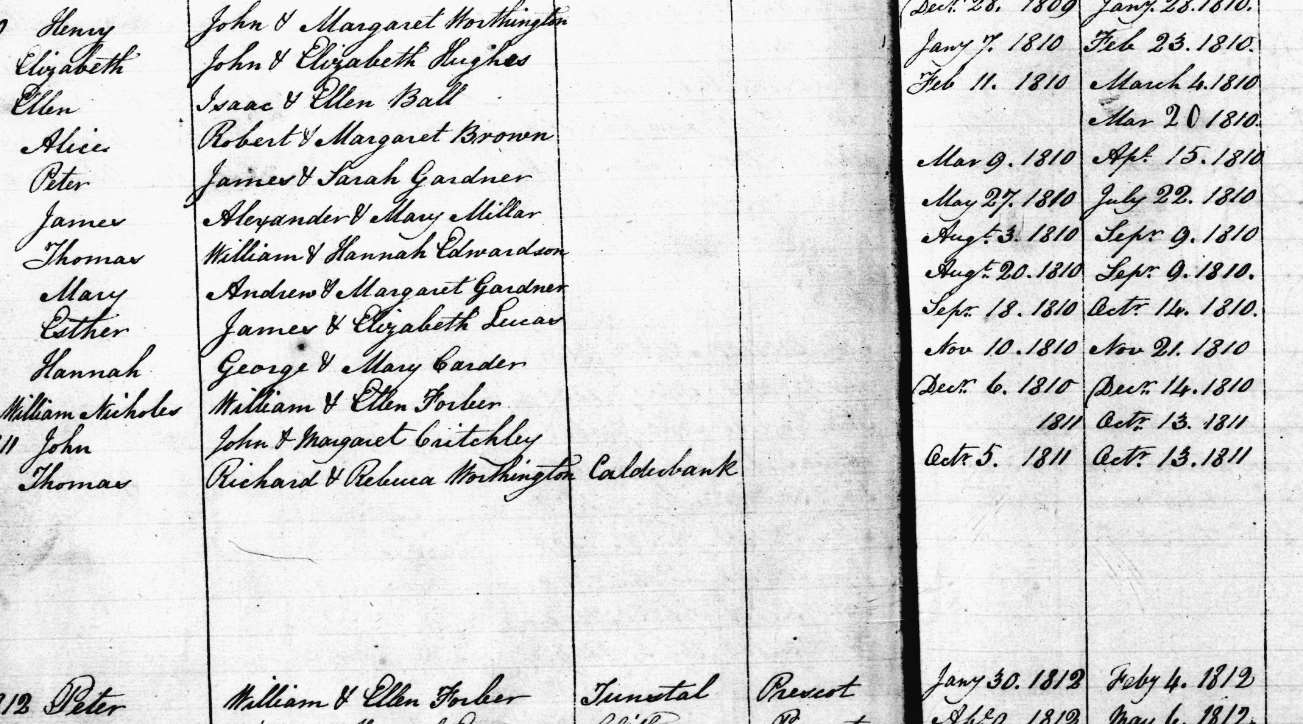 Henry John & Margaret Worthington Decr. 28. 1809 Jany. 28. 1810.
Elizabeth John & Elizabeth Hughes Jany 7. 1810 Feb 23. 1810.
Ellen Isaac & Ellen Ball Feb 11. 1810 March 4. 1810
Alice Robert & Margaret Brown Mar 20 1810.
Peter James & Sarah Gardner Mar 9. 1810 Apl. 15. 1810
James Alexander & Mary Millar May 27. 1810 July 22. 1810
Thomas William & Hannah Edwardson Augt. 3. 1810 Sepr 9. 1810
Mary Andrew & Margaret Gardner Augt. 20. 1810 Sepr. 9. 1810.
Esther James & Elizabeth Lucas Sepr. 18. 1810 Octr. 14. 1810.
Hannah George & Mary Carder Nov 10. 1810 Nov 21. 1810
William Nicholes William & Ellen Forber Decr. 6. 1810 Decr. 14. 1810
11 John John & Margaret Critchley 1811 Octr. 13. 1811
Thomas Richard & Rebecca Worthington Calderbank Octr 5. 1811 Octr. 13. 1811
812 Peter William & Ellen Forber Tunstal Prescot Jany 30. 1812 Feby 4. 1812
1812 May 6. 1812.